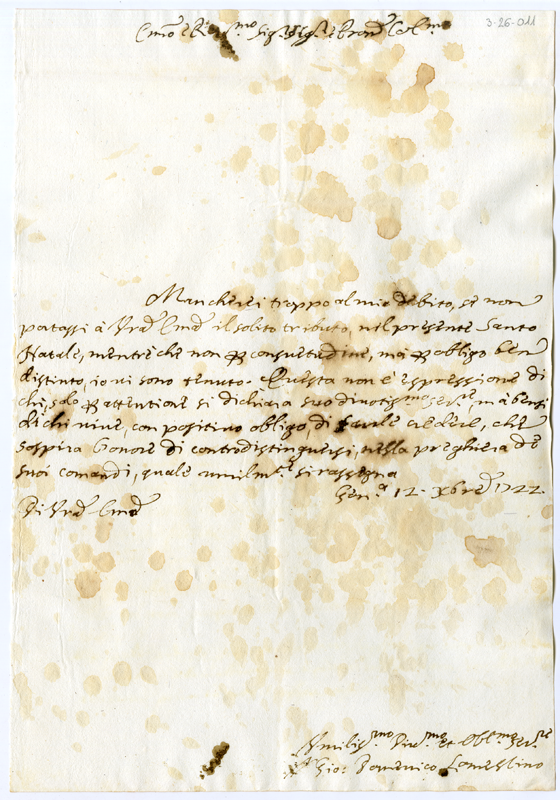 3-26-011
Em.º e R.mo Sig.r Sig.r e Pron Col.mo
Mancherei troppo al mio debito, se non
portassi à Vrã Emã il solito tributo, nel presente Santo
Natale, mentre che non p consuetudine, mà p obligo ben
distinto, io vi sono tenuto. Questa non è espressione di
chi, solo p attentione si dichiara suo divotis.mo ser.re, mà bensi
di chi vive, con positivo obligo, di farle vedere, che
sospira l'onore di contradistinguersi, nella preghiera de
suoi comandi, quale umilm.te si rassegna
Gen.a 12. Xbre 1722.
Di Vrã Emã
Umilis.mo Div.mo et Obl.mo Ser.re
Gio: Domenico